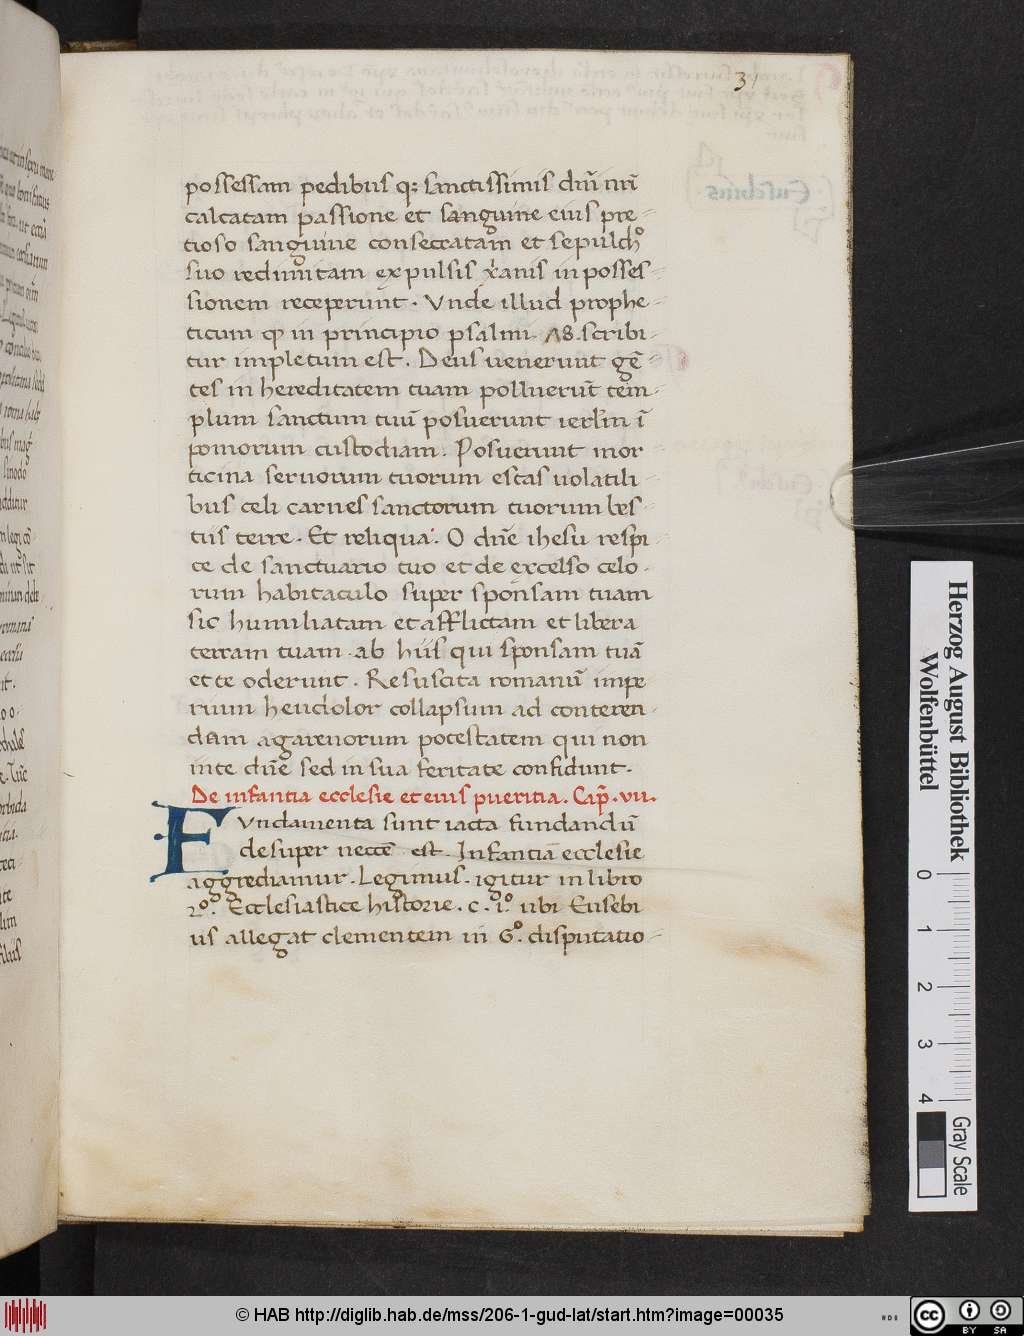 31
possessam pedibus q; sanctissimis dnī nrī
calcatam passione et sanguine eius pre-
tioso sanguine consecratam et sepulchº
suo redimitam expulsis xp̄anis in posses-
sionem receperunt. Vnde illud prophe-
ticum qd in principio psalmi. 78. scribi-
tur impletum est. Deus uenerunt gē-
tes in hereditatem tuam polluerūt tem-
plum sanctum tuū posuerunt ierl̄m ī
pomorum custodiam. Posuerunt mor
ticina seruorum tuorum escas uolatili-
bus celi carnes sanctorum tuorum bes-
tiis terre. Et reliqua. O dn̄e ihesu respi
ce de sanctuario tuo et de excelso celo-
rum habitaculo super sponsam tuam
sic humiliatam et afflictam et libera
terram tuam ab hiis qui sponsam tuā
et te oderunt. Resuscita romanū impe
rium heu dolor collapsum ad conteren-
dam agarenorum potestatem qui non
in te dn̄e sed in sua feritate confidunt.
De infantia ecclesie et eius pueritia. Cap̄. vii.
Fundamenta sunt iacta fundandū
desuper necc̄e est. Infantiā ecclesie
aggrediamur. Legimus igitur in libro
2º. Ecclesiastice historie. c. iº. ubi Eusebi
us allegat clementem in 6º. disputatio-
Herzog August Bibliothek
Wolfenbüttel
0 1 2 3 4
Gray Scale
© HAB http://diglib.hab.de/mss/206-1-gud-lat/start.htm?image=00035
cc BY SA